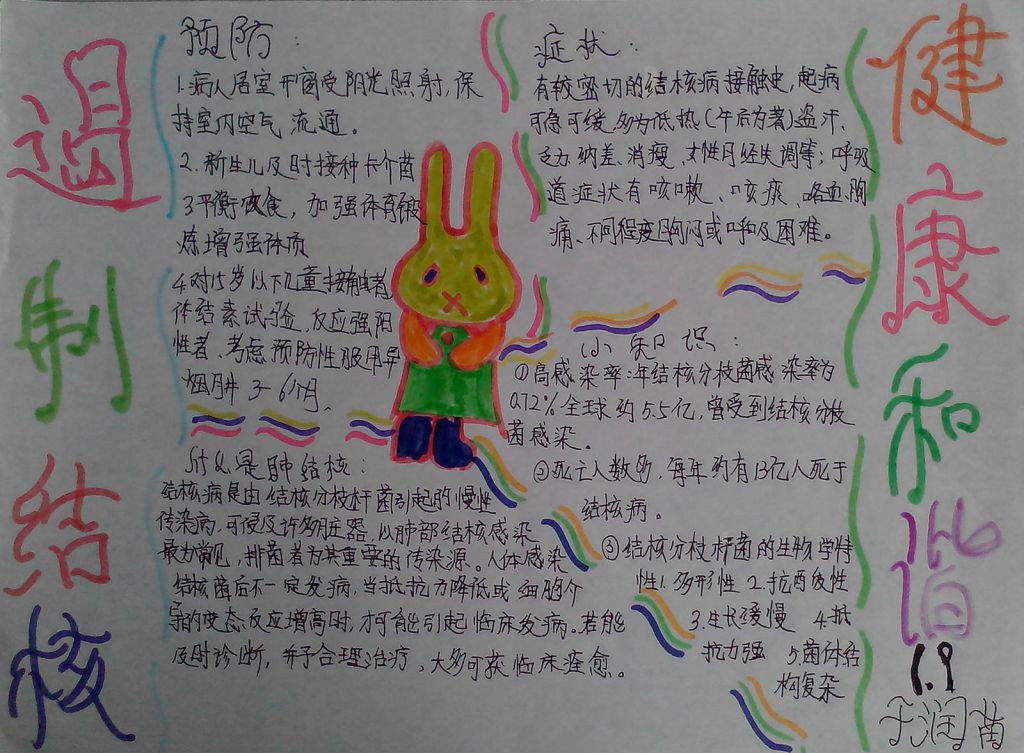 遏
制
结
核
预防:
1.病人居室开窗受阳光照射,保
持室内空气流通。
2.新生儿及时接种卡介苗
3平衡饮食,加强体育锻
炼增强体质
4.对15岁以下儿童接触者
体结素试验,反应强阳
性者,考虑预防性服用异
烟肼3-6个月.
症状:
有较密切的结核病接触史,起病
可急可缓,多为低热(午后为著)盗汗、
乏力、纳差、消瘦、女性月经失调等;呼吸
道症状有咳嗽、咳痰、咯血胸
痛、不同程度胸闷或呼吸困难。
小知识:
①高感染率:年结核分枝菌感染率为
0.72%全球约5.5亿,曾受到结核分枝
菌感染。
②死亡人数多,每年约有13亿人死于
结核病。
③结核分枝杆菌的生物学特
性1.多形性 2.抗酉夂性
3.生长缓慢 4.抵
抗力强 5.菌体结
构复杂
什么是肺结核:
结核病是由结核分枝杆菌引起的慢性
传染病,可侵及许多脏器,以肺部结核感染
最为常见,排菌者为其重要的传染源。人体感染
结核菌后不一定发病,当抵抗力降低或细胞介
导的变态反应增高时,才可能引起临床发病。若能
及时诊断,并予合理治疗,大多可获临床痊愈。
健
康
和
谐
1.9
于润苗